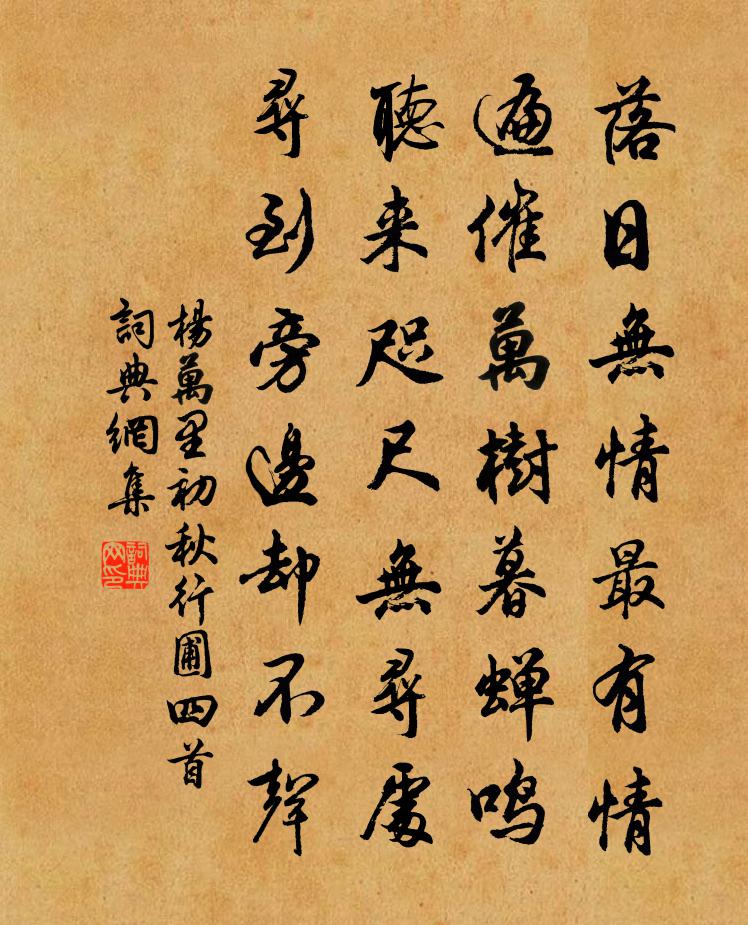 落日無情最有情
遍催萬樹暮蝉鸣
聴来咫尺無尋處
尋到旁邊却不聲
楊萬里初秋行圃四首
詞典網集
詞典网印